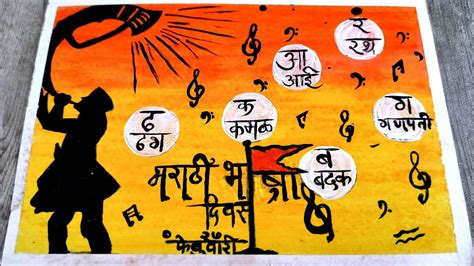 र
रथ
आ
आई
क
कमळ
ग
गणपती
ढ
ढग
ब
बदक
मराठी भाषा
दिवस
फेब्रुवारी